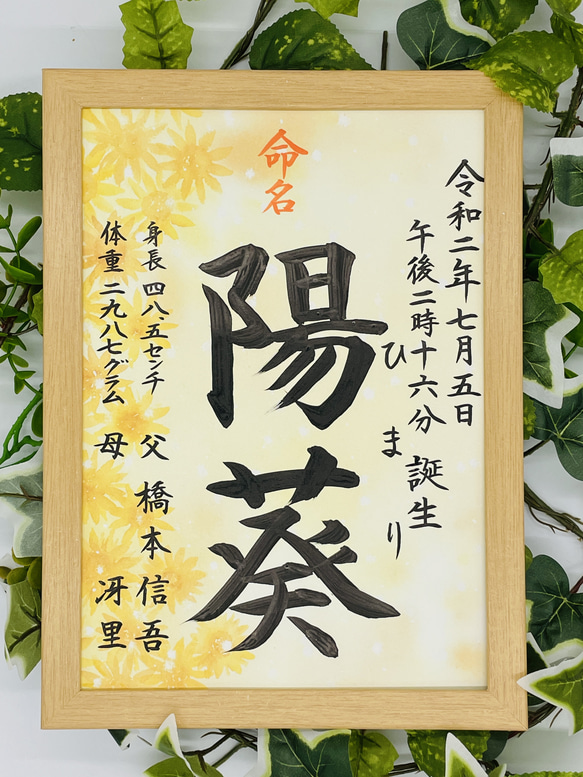 令和二年七月五日
午後二時十六分 誕生
命名
陽葵
ひまり
身長 四八.五センチ
体重 二九八七グラム
父 橋本 信吾
母 冴里